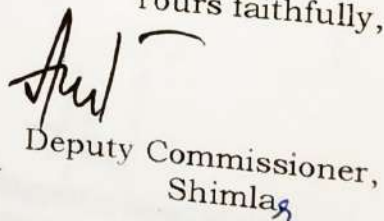 Yours faithfully,
Deputy Commissioner,
Shimla